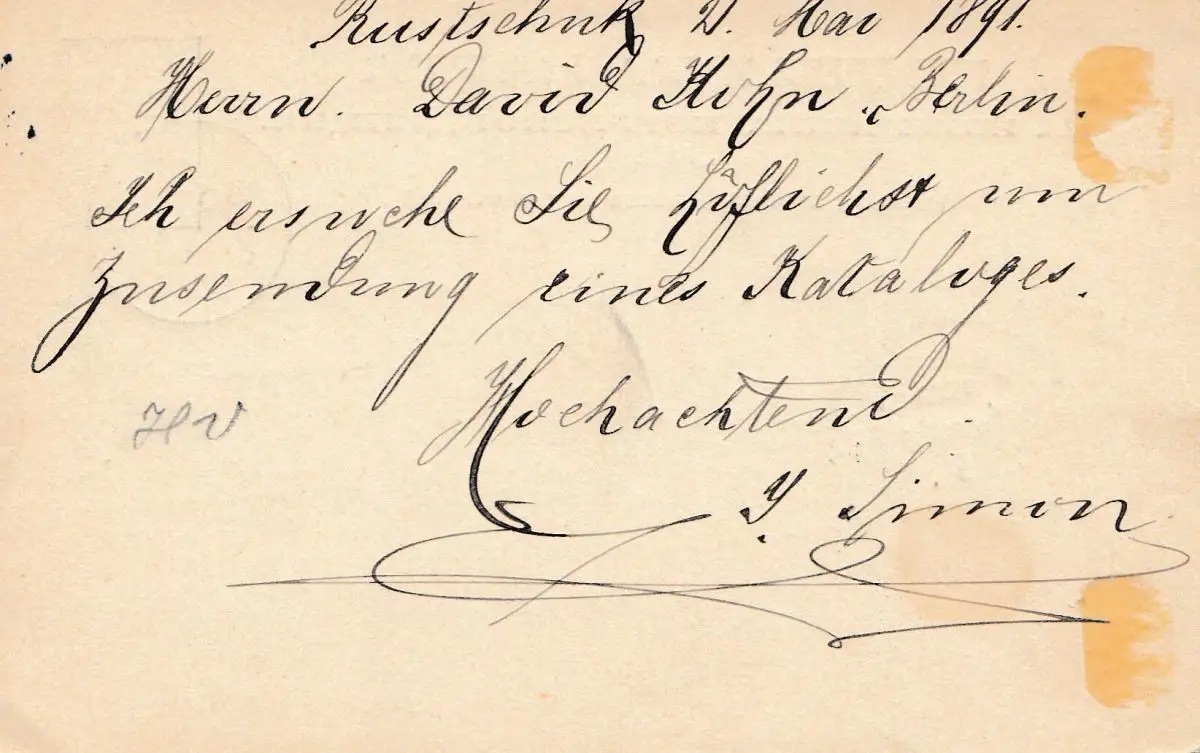 Rustschuk 2. Mai 1891.
Herrn. David Kohn. Berlin.
Ich ersuche Sie höflichst um
Zusendung eines Kataloges.
Hochachtend.
Y. Simon